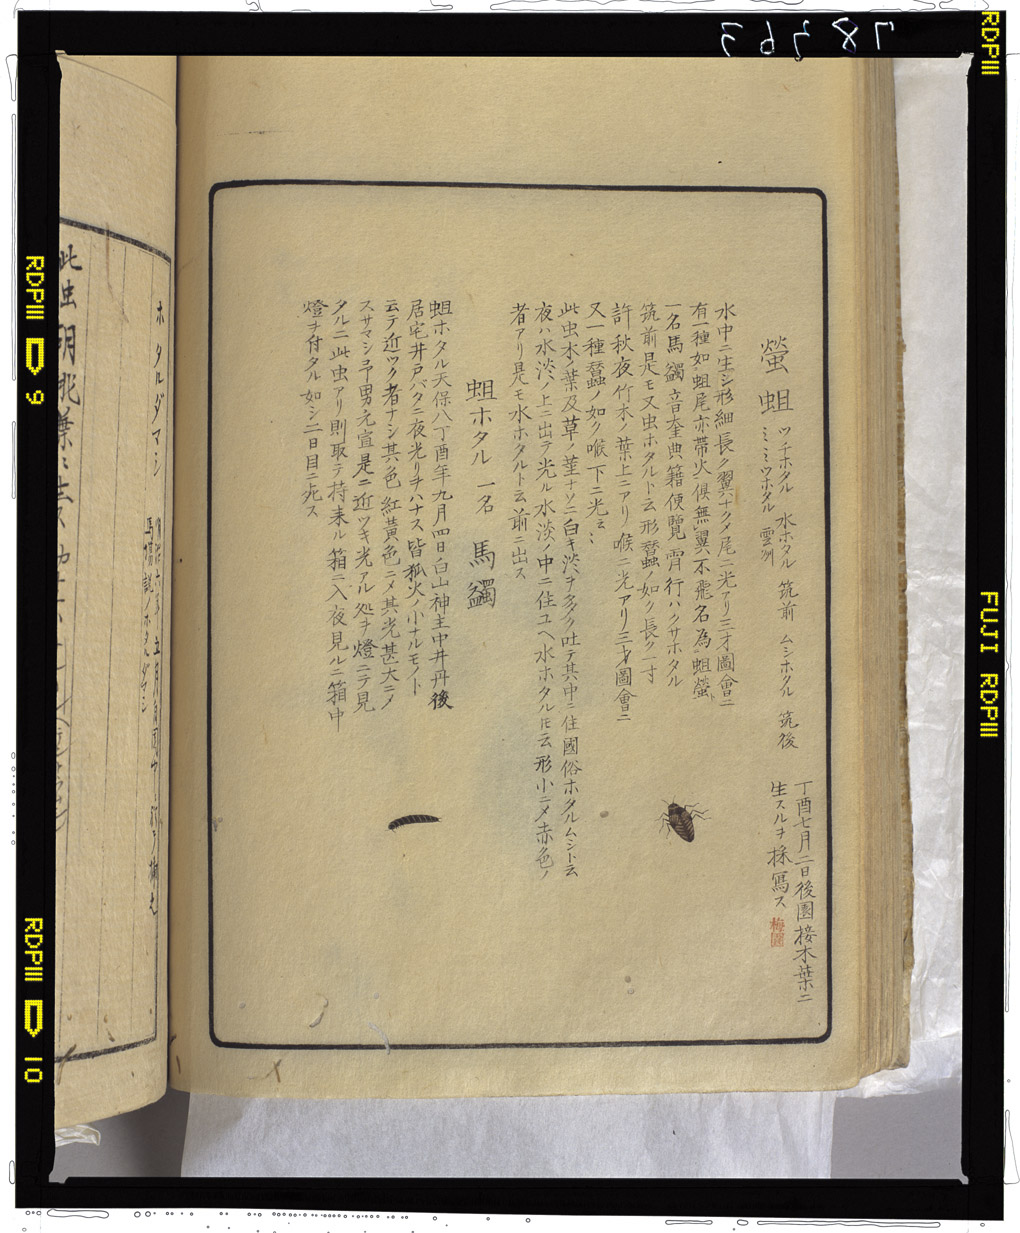 78363
RDPIII
RDPIII
9
RDPIII
10
FUJI RDPIII
丁酉七月二日後園接木葉ニ
生スルヲ採寫ス
梅園
螢蛆 ツチホタル 水ホタル 筑前 ムシホタル 筑後
ミミツホタル 雲州
水中ニ生シ形細長ク翼ナクメ尾ニ光アリ三才圖會ニ
有一種如蛆尾亦帶火倶無翼不飛名為蛆螢
一名馬蠲音奎典籍便覽宵行ハクサホタル
筑前是モ又虫ホタルト云形蠶ノ如ク長ク一寸
許秋夜竹木ノ葉上ニアリ喉ニ光アリ三才圖會ニ
又一種蠶ノ如ク喉下ニ光
此虫木ノ葉及草ノ莖ナソニ白キ淡ヲ多ク吐テ其中ニ住國俗ホタルムシト云
夜ハ水淡ノ上ニ出テ光ル水淡ノ中ニ住ユヘ水ホタルトモ云形小ニメ赤色ノ
者アリ是モ水ホタルト云前ニ出ス
蛆ホタル 一名 馬蠲
蛆ホタル天保八丁酉年九月四日白山神主中井丹後
居宅井戸バタニ夜光リヲハナス皆狐火ノ小ナルモノト
云テ近ツク者ナシ其色紅黃色ニメ其光甚大ニメ
スサマシ予男元宣是ニ近ツキ光アル処ヲ燈ニテ見
タルニ此虫アリ則取テ持来ル箱ニ入夜見ルニ箱中
燈ヲ付タル如シ二日目ニ死ス
ホタルダマシ
此虫